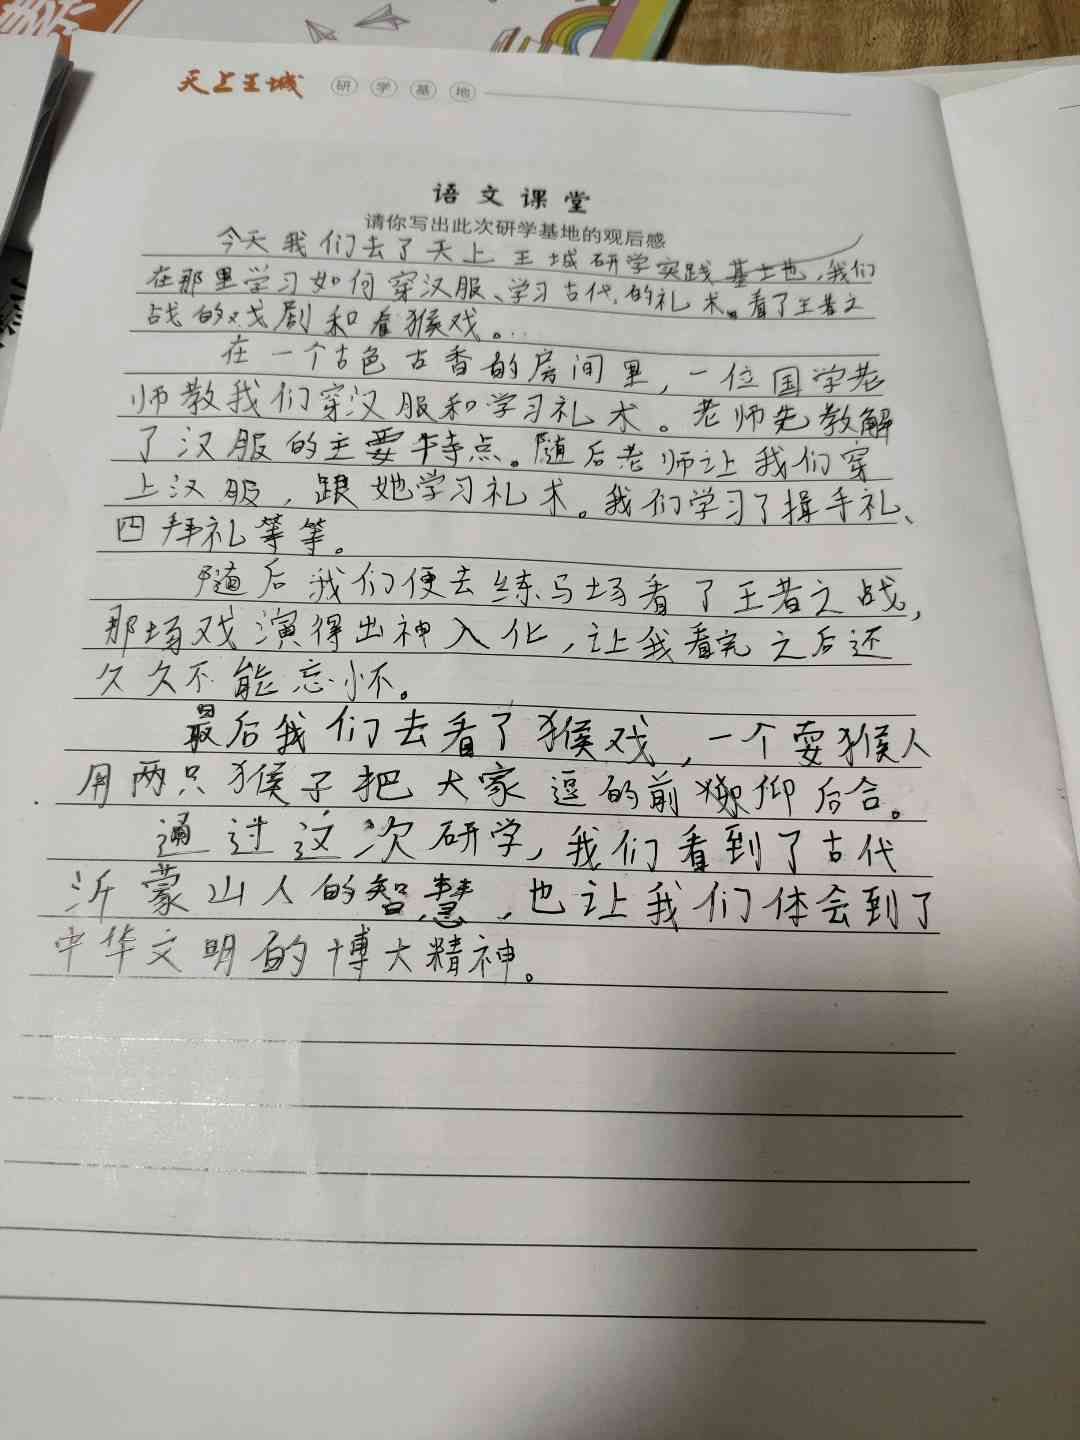 天上王城 研学基地
语文课堂
请你写出此次研学基地的观后感
今天我们去了天上王城研学实践基地，我们
在那里学习如何穿汉服、学习古代的礼术。看了王者之
战的戏剧和看猴戏。...
在一个古色古香的房间里，一位国学老
师教我们穿汉服和学习礼术。老师先教解
了汉服的主要特点。随后老师让我们穿
上汉服，跟她学习礼术。我们学习了揖手礼、
四拜礼等等。
随后我们便去练马场看了王者之战，
那场戏演得出神入化，让我看完之后还
久久不能忘怀。
最后我们去看了猴戏，一个耍猴人
用两只猴子把大家逗的前仰后合。
通过这次研学，我们看到了古代
沂蒙山人的智慧，也让我们体会到了
中华文明的博大精神。